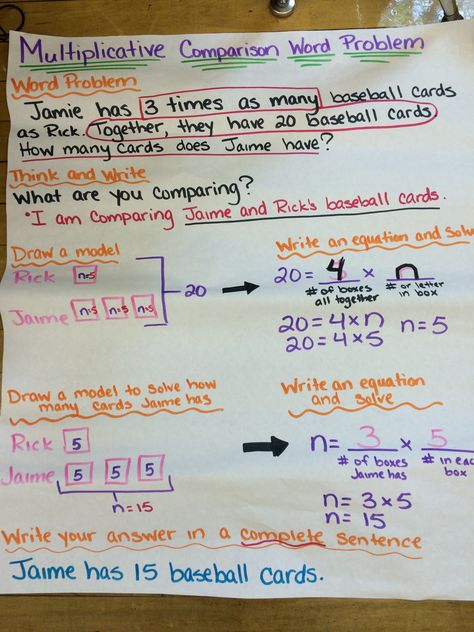 Multiplicative Comparison Word Problem
Word Problem
Jamie has 3 times as many baseball cards
as Rick. Together, they have 20 baseball cards.
How many cards does Jaime have?
Think and Write
What are you comparing?
*I am comparing Jaime and Rick's baseball cards.
Draw a model
Rick n=5
Jaime n=5 n=5 n=5
20
Write an equation and solve
20= 4 × n
# of boxes all together
# or letter in box
20=4×n n=5
20=4×5
Draw a model to solve how
many cards Jaime has
Rick 5
Jaime 5 5 5
n=15
Write an equation
and solve
n= 3 × 5
# of boxes Jaime has
# in each box
n=3×5
n=15
Write your answer in a complete sentence
Jaime has 15 baseball cards.